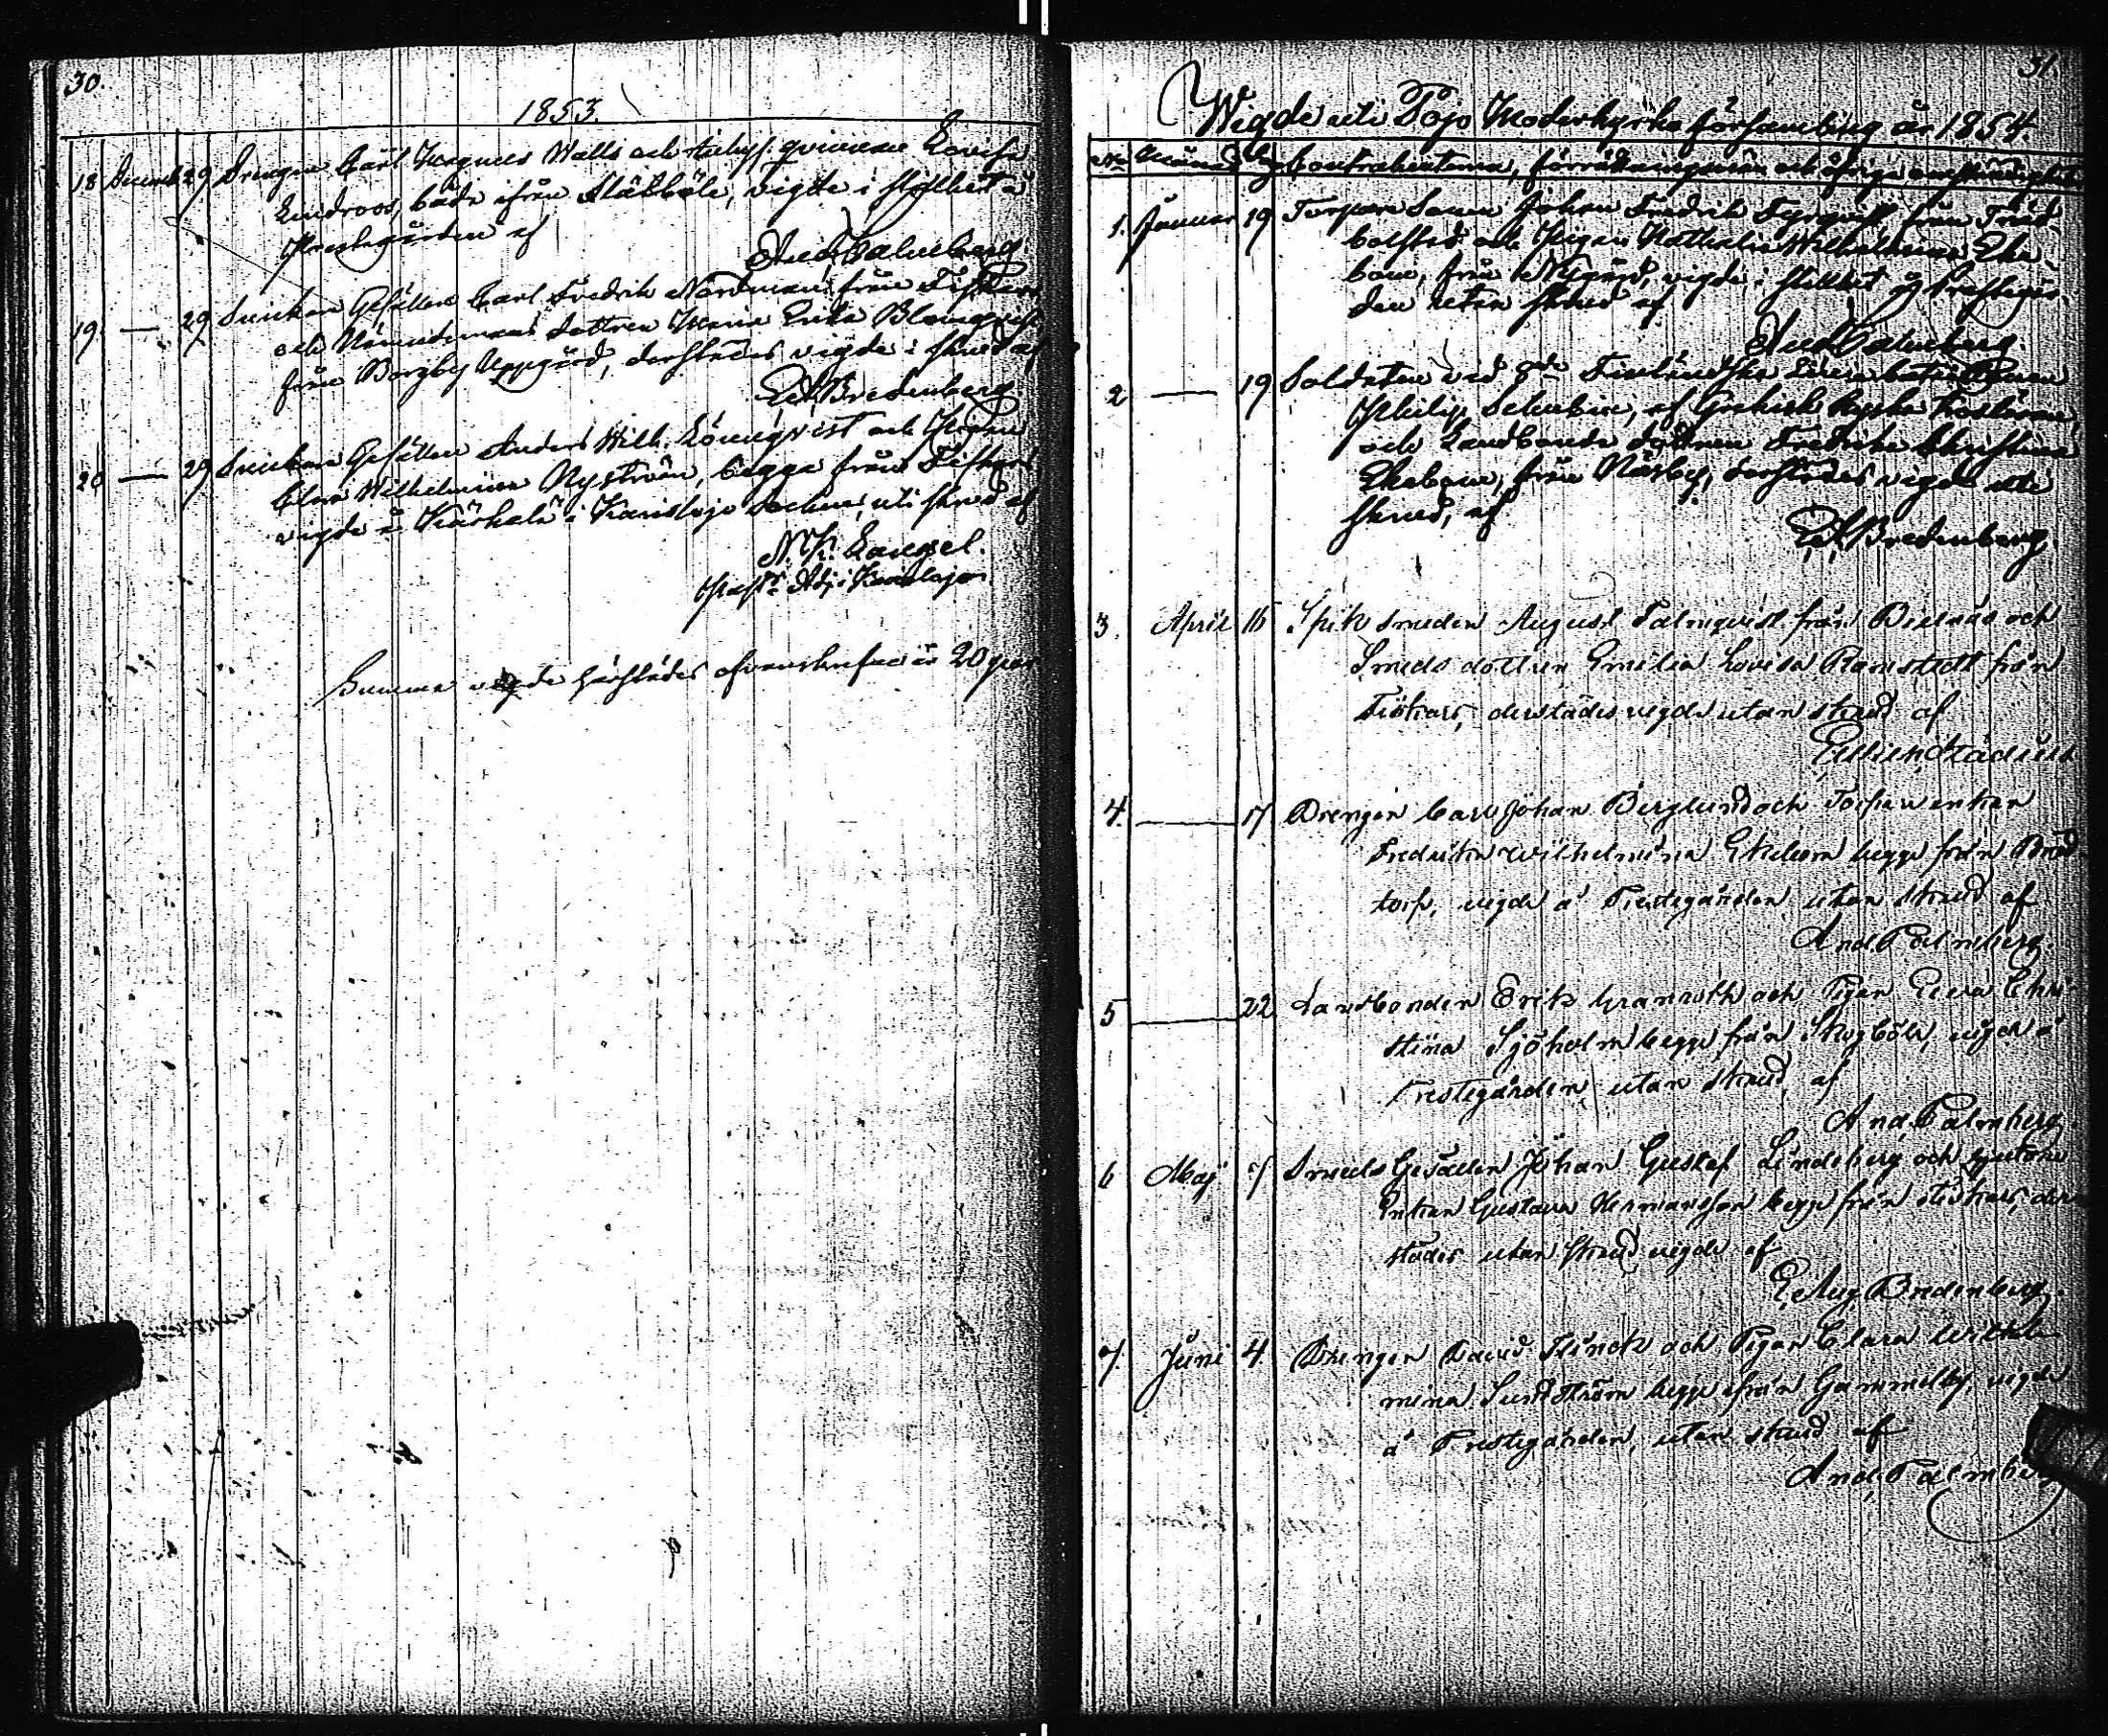 30.
1853.
18 Decemb. 29 Drengen Carl Magnus Walls och qvinnan Lovisa
Lindroos, både ifrån Släkböle, vigde i stillhet å
Prestegården af
And. Palmberg.
19. — 29 Snickare Gesällen Carl Fredrik Nordman från Fiskars
och Nämndemans dottren Maria Erika Blomqvist
från Borgby Uppgård, derstädes vigde i skrud af
E. A. Bredenberg.
20 — 29 Snickare Gesällen Anders Wilh. Lönnqvist och Pigan
Clara Wilhelmina Nyström, begge från Fiskars
vigde å Kärkelä i Karislojo Socken, uti skrud af
N. Langel.
Adj. i Karislojo
Summa vigde härstädes ofvanskrefne är 20 par
31.
Wigde uti Pojo Moderkyrko församling år 1854.
No Månad Dag Contrahenterne, förrättningsmän och öfriga omständigheter
1. Januar 19 Torpare Sonen Johan Fredrik Fyrqvist från Träd-
bolstad och Pigan Nathalia Wilhelmina Eke-
bom, från Nygård, vigde i stillhet å Prestegår-
den utan skrud af
And. Palmberg.
2 — 19 Soldaten vid Finländska Linie bataillonen
Philip, af Grekisk Ryska Trosläran,
och Landbonde dottren Fredrika Christina
Ekebom, från Näsby, derstädes vigde uti
skrud, af
E. A. Bredenberg
3. April 16 Spik smeden August Palmqvist från Billnäs och
Smeds dottren Emilia Lovisa Ramstedt från
Fiskars, derstädes vigde utan skrud af
4. — 17 Drengen Carl Johan Berglund och Torpar enkan
Fredrika Wilhelmina Ekebom begge från Bröd
torp, vigde å Prestegården utan skrud af
And. Palmberg.
5 — 22 Landbonden Erik Granroth och Pigan Eeva Chri-
stina Sjöholm begge från Skogböle, vigde å
Prestegården, utan skrud af
And. Palmberg.
6 Maj 7 Smeds Gesällen Johan Gustaf Lindeberg och
Enkan Gustava Hermansson begge från Fiskars, der-
städes utan skrud vigde af
E. Aug. Bredenberg.
7. Juni 4. Drengen David Flinck och Pigan Clara Wilhel-
mina Sundström begge ifrån Gammelby, vigde
å Prestegården, utan skrud af
And. Palmberg